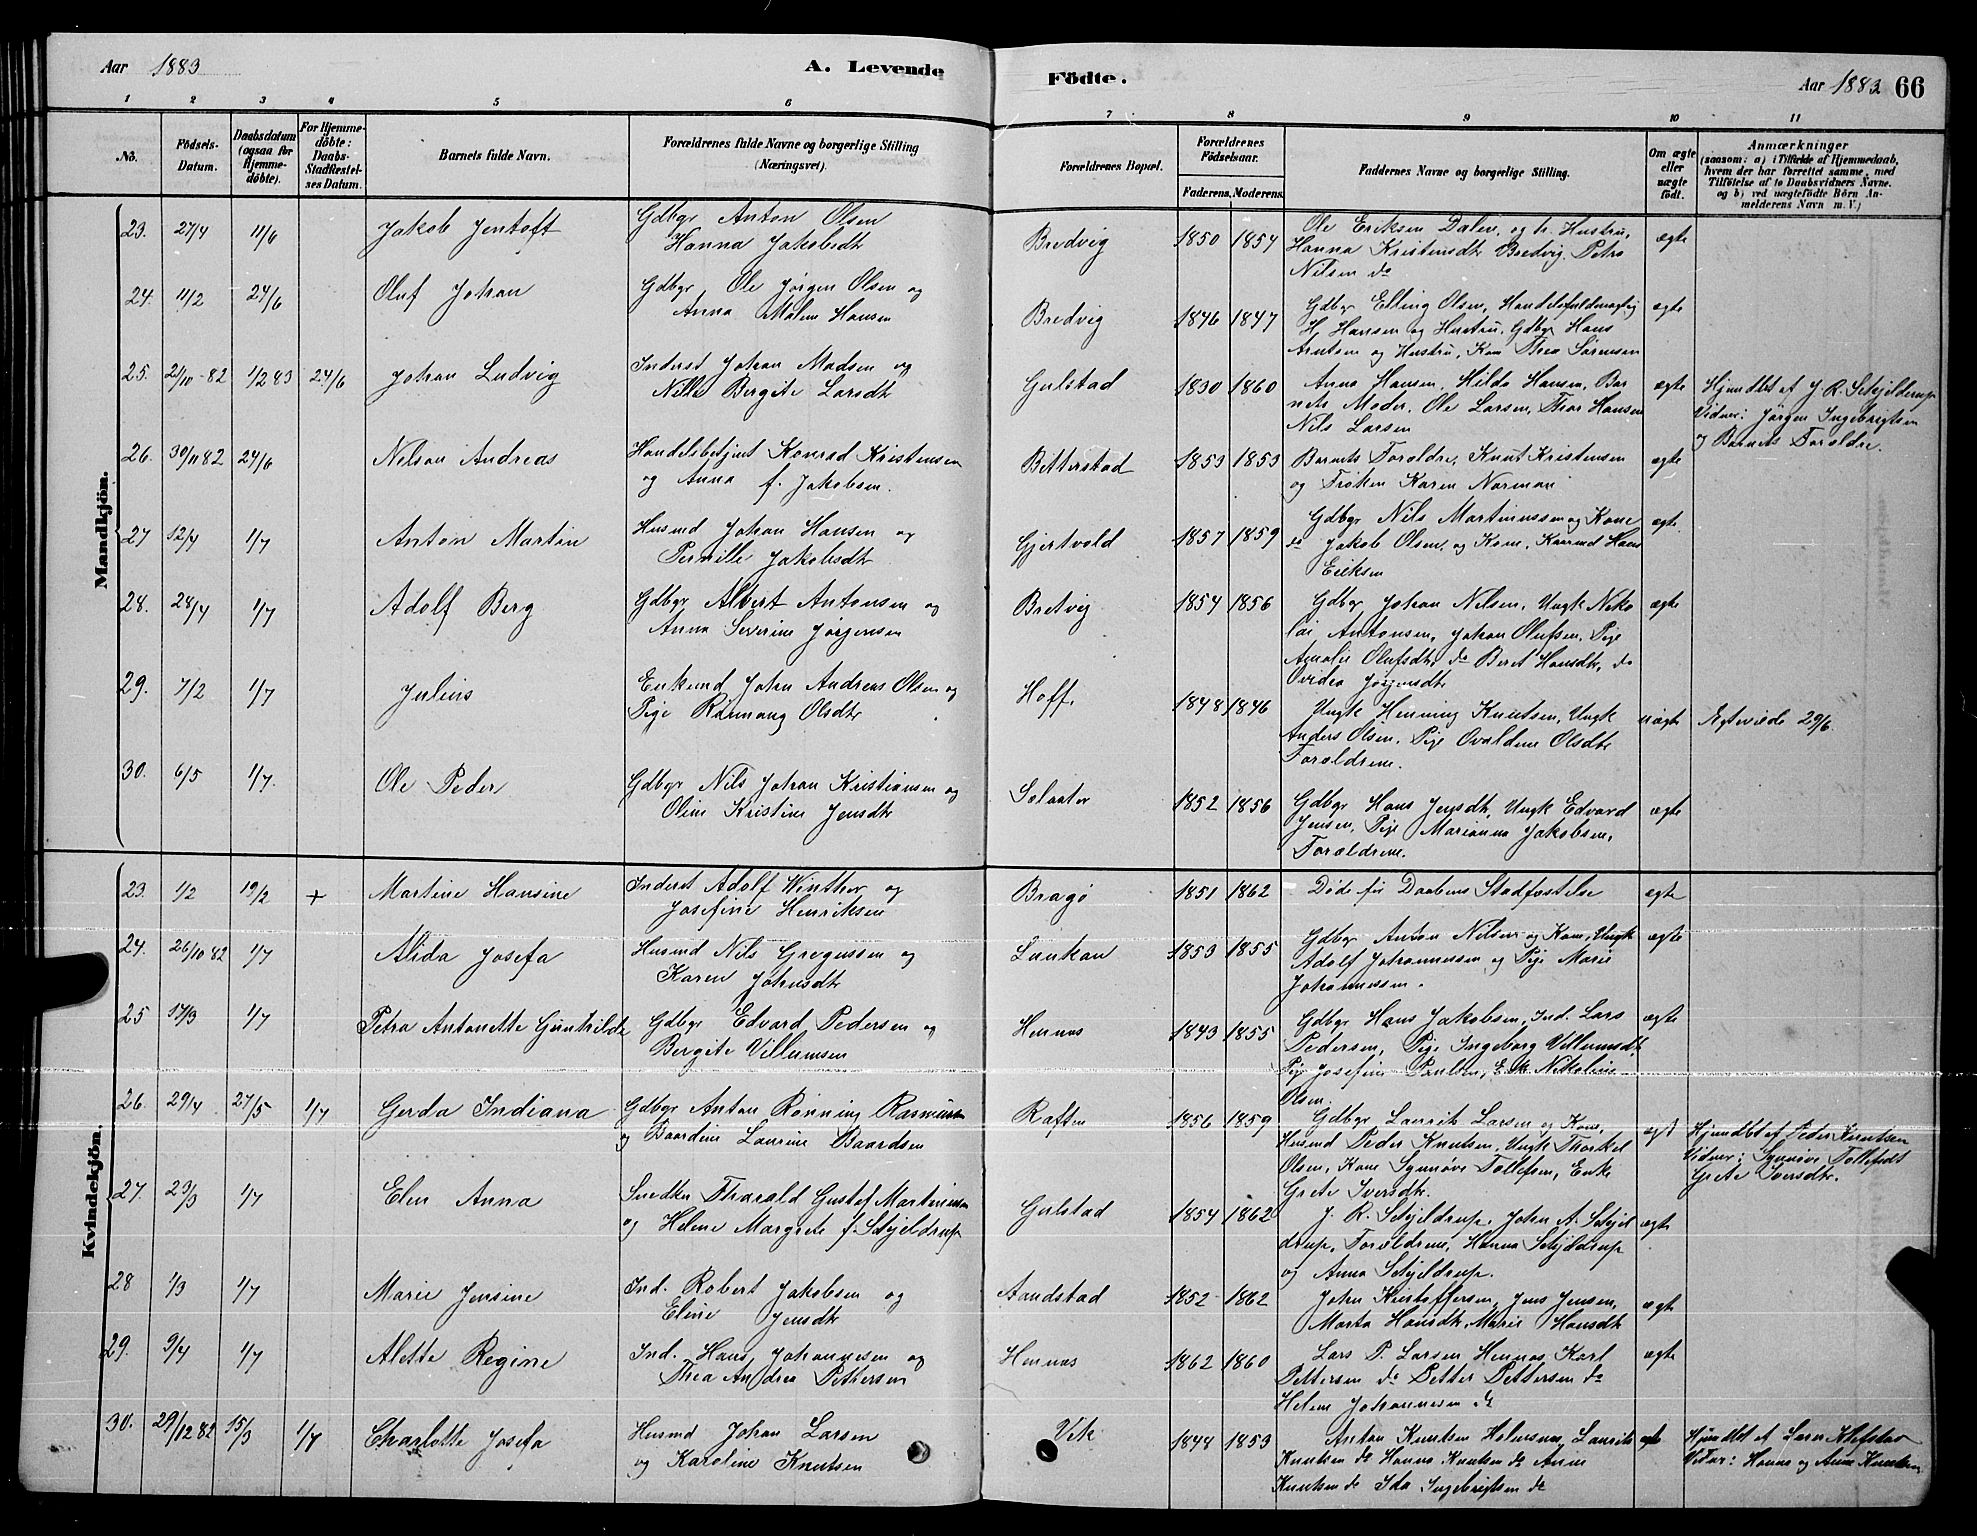 Aar 1883
A. Levende
Födte.
Aar 1883 66
1 2 3 4 5 6 7 8 9 10 11
No.
Födsels-Datum.
Daabsdatum (ogsaa for Hjemme-döbte).
For Hjemme-döbte: Daabs-Stadfæstel-ses Datum.
Barnets fulde Navn.
Forældrenes fulde Navne og borgerlige Stilling (Næringsvei).
Forældrenes Bopæl.
Forældrenes Födselsaar.
Faderens. Moderens.
Faddernes Navne og borgerlige Stilling.
Om ægte eller uægte födt.
Anmærkninger
(saasom: a) i Tilfælde af Hjemmedaab, hvem der har forrettet samme, med Tilföielse af to Daabsvidners Navne, og b) ved uægtefödte Börn An-melderens Navn m. V.)
Mandkjön.
23. 27/4 11/6 Jakob Jentoft
Gdbgr Anton Olsen
Hanna Jakobsdt
Bredvig 1850 1854
Ole Eriksen Dalen, og h. Hustru,
Hanna Kristensdtr Bredvig. Petra
Nilsen do
ægte
24. 11/2 24/6 Oluf Johan
Gdbgr Ole Jørgen Olsen og
Anna Malene Hansen
Bredvig 1846 1847
Gdbgr Elling Olsen, Handelsfuldmægtig
H. Hansen og Hustru, Gdbgr Hans
Arntsen og Hustru, Kone Thea Sørensen
ægte
25. 21/10-82 1/2 83 24/6 Johan Ludvig
Inderst Johan Madsen og
Nille Bergite Larsdtr
Gulstad 1830 1860
Anna Hansen, Hilda Hansen, Bar
nets Moder, Ole Larsen, Thor Hansen
Nils Larsen
ægte
Hjemdbt af J. R. Schjelderup
Vidner: Jørgen Ingebrigtsen
og Barnets Forældre.
26. 30/11 82 24/6 Nelson Andreas
Handelsbetjent Konrad Kristensen
og Anna f. Jakobsen.
Betterstad 1853 1853
Barnets Forældre, Knut Kristensen
og Frøken Karen Norman
ægte
27 12/4 1/7 Anton Martin
Husmd Johan Hansen og
Pernille Jakobsdtr
Gjertvold 1857 1859
Gdbgr Nils Martinussen og Kone
do Jakob Olsen og Kone, Kaarmd Hans
Eriksen
ægte
28. 28/4 1/7 Adolf Berg
Gdbgr Albert Antonsen og
Anna Severine Jørgensen
Bretvig 1854 1856
Gdbgr Johan Nilsen, Ungk Niko
lai Antonsen, Johan Olufsen, Pige
Amalie Olufsdtr, do Beret Hansdtr, do
Ovidia Jørgensdtr
ægte
29. 7/2 1/7 Julius
Enkemd Johan Andreas Olsen og
Pige Rønnaug Olsdtr
Hoff. 1848 1846
Ungk Henning Knutsen, Ungk
Anders Olsen, Pige Ovaldine Olsdtr
Forældrene.
uægte
Ægteviede 29/6.
30. 6/5 1/7. Ole Peder
Gdbgr Nils Johan Kristiansen og
Oline Kristine Jensdtr
1852 1856
Gdbgr Hans Jensdtr, Ungk Edvard
Jensen, Pige Marianna Jakobsen,
Forældrene.
ægte
Kvindekjön.
23. 1/2 19/2 + Martine Hansine
Inderst Adolf Winther og
Josefine Henriksen
Bragø 1851 1862
Døde før Daabens Stadfæstelse
ægte
24. 26/10 82 1/7 Alida Josefa
Husmd Nils Gregussen og
Karen Johnsdtr
Lunkan 1853 1855
Gdbgr Anton Nilsen og Kone, Ungk
Adolf Johannessen og Pige Marie
Johannessen.
ægte
25 17/3 1/7 Petra Antonette Gunhilde
Gdbgr Edvard Pedersen og
Bergite Villumsen
Hennes 1843 1855
Gdbgr Hans Jakobsen, Ind. Lars
Pedersen, Pige Ingeborg Villumsdtr
Pige Josefine Paulsen, Enke Nikoline
Olsen.
ægte
26. 29/4 27/5 1/7 Gerda Indiana
Gdbgr Anton Rønning Rasmussen
og Baardine Laurine Baardsen
Raften 1856 1859
Gdbgr Laurits Larsen og Kone,
Husmd Peder Knutsen, Ungk Thorkel
Olsen, Kone Synnøve Tollefsen, Enke
Grete Iversdtr.
ægt
Hjemdbt af Peder Knutsen
Vidner: Synnøve Tollefsdt
Grete Iversdtr.
27. 23/3 1/7 Elen Anna
Snedker Tharald Gustef Martinussen
og Helene Margrete f. Schjeldrup
Gulstad 1854 1862
J. R. Schjeldrup, John A. Schjel
drup, Forældrene, Hanna Schjeldrup
og Anna Schjeldrup.
ægte
28 1/3 1/7 Marie Jensine
Ind. Robert Jakobsen og
Eline Jensdtr
Aandstad 1852 1862
John Kristoffersen, Jens Jensen,
Marta Hansdtr, Marie Hansdtr
ægte
29. 9/4 1/7 Alette Regine
Ind. Hans Johannesen og
Thea Andrea Pettersen
Hennes 1862 1860
Lars P. Larsen Hennes, Karl
Pettersen do Petter Pettersen do
Helene Johannesen do
ægte
30. 29/12 82 15/3 1/7 Charlotte Josefa
Husmd Johan Larsen
og Karoline Knutsen
Vik 1848 1853
Anton Knutsen Holmsnes, Laurits
Knutsen do Hanna Knutsen do Anne
Knutsen do Ida Ingebrigtsen do
ægte
Hjemdbt af Søren
Vidner: Hanna og Anne Knutsen